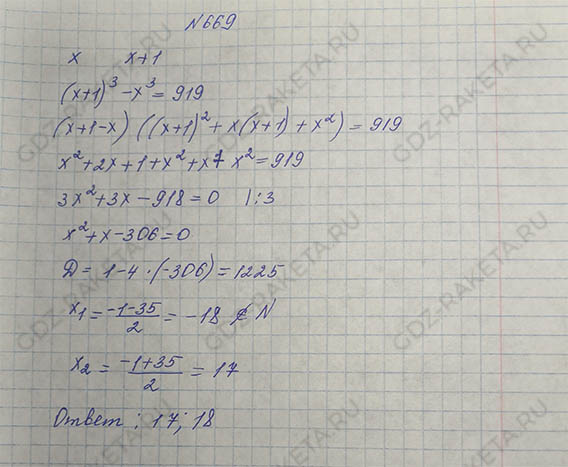 N669
x x+1
(x+1)³-x³=919
(x+1-x)((x+1)²+x(x+1)+x²)=919
x²+2x+1+x²+x+x²=919
3x²+3x-918=0 |:3
x²+x-306=0
D=1-4·(-306)=1225
x₁=(-1-35)/2=-18 ∉ N
x₂=(-1+35)/2=17
Ответ: 17; 18
GDZ-RAKETA.RU
GDZ-RAKETA.RU
GDZ-RAKETA.RU
GDZ-RAKETA.RU
GDZ-RAKETA.RU
GDZ-RAKETA.RU